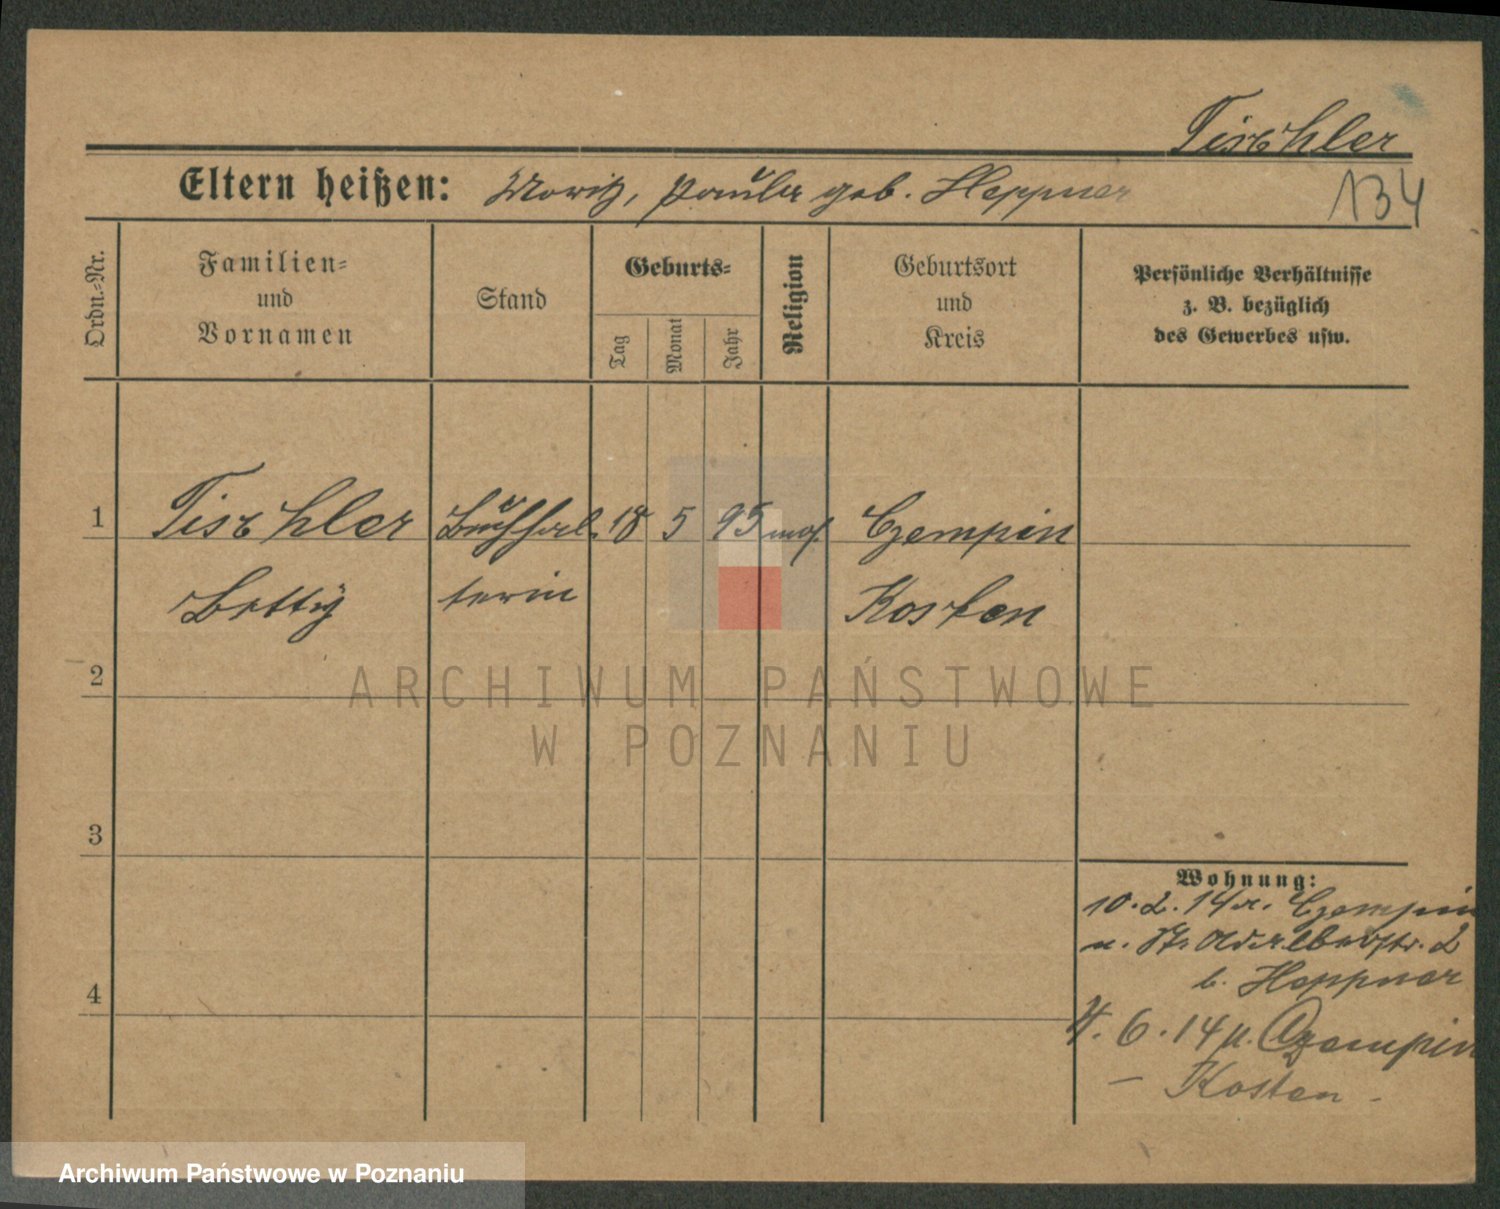 Tischler
Eltern heißen: Moritz, Paula geb. Heppner
134
Ordn.-Nr.
Familien-
und
Vornamen
Stand
Geburts-
Tag
Monat
Jahr
Religion
Geburtsort
und
Kreis
Persönliche Verhältnisse
z. B. bezüglich
des Gewerbes usw.
1 Tischler Buchhal- 18 5 95 mos. Czempin
Betty terin Kosten
2
ARCHIWUM PAŃSTWOWE
W POZNANIU
3
Wohnung:
10.2.14 v. Czempin
n. St. Adalbertstr. 2
b. Heppner
4
6.14 n. Czempin
– Kosten –
Archiwum Państwowe w Poznaniu